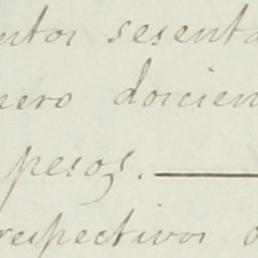 entos sesenta
nero docien
pesos.
respectivos